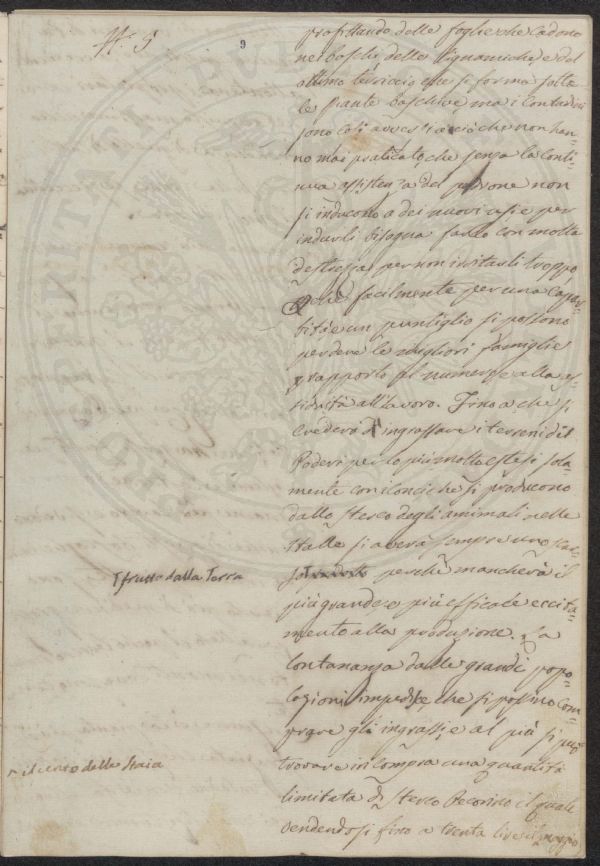 N.° 5
9
profittando delle foglie che cadono
nei boschi, delle lignamiche, e dal
ottimo terriccio che si forma sotto
le piante boschive, ma i Contadini
sono così avversi a ciò che non han-
no mai praticato, che senza la conti-
nua assistenza del padrone non
si inducono a dei nuovi usi, e per
indurli bisogna farlo con molta
destrezza per non irritarli troppo
che facilmente per una capar-
bità e un puntiglio si possono
perdere le migliori famiglie
rapporto al numero, e alla as-
siduità all'lavoro. Fino a che si
crederà d'ingrassare i terreni dei
Poderi per lo più molto estesi sola-
mente con i conci che si producono
dallo sterco degli animali nelle
Stalle si averà sempre uno scar-
so perchè mancherà il
frutto dalla Terra
più grande, e più efficace eccita-
mento alla produzione. La
lontananza dalle grandi popo-
lazioni impedisce che si possino com-
prare gli ingrassi, e al più si può
trovare in compra una quantità
il cento delle Staia
limitata di sterco Pecorino il quale
vendendosi fino a trenta lire il moggio